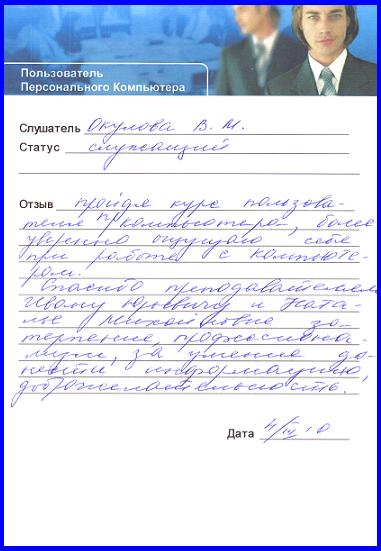 Пользователь
Персонального Компьютера
Слушатель Окулова В. М.
Статус служащий
Отзыв пройдя курс пользова-
теля П компьютера, более
уверенно ощущаю себя
при работе с компьюте-
ром.
Спасибо преподавателям
Ивану Юрьевичу и Ната-
лье Михайловне за
терпение, профессиона-
лизм, за умение до-
нести информацию,
доброжелательность.
Дата 4/IV 10